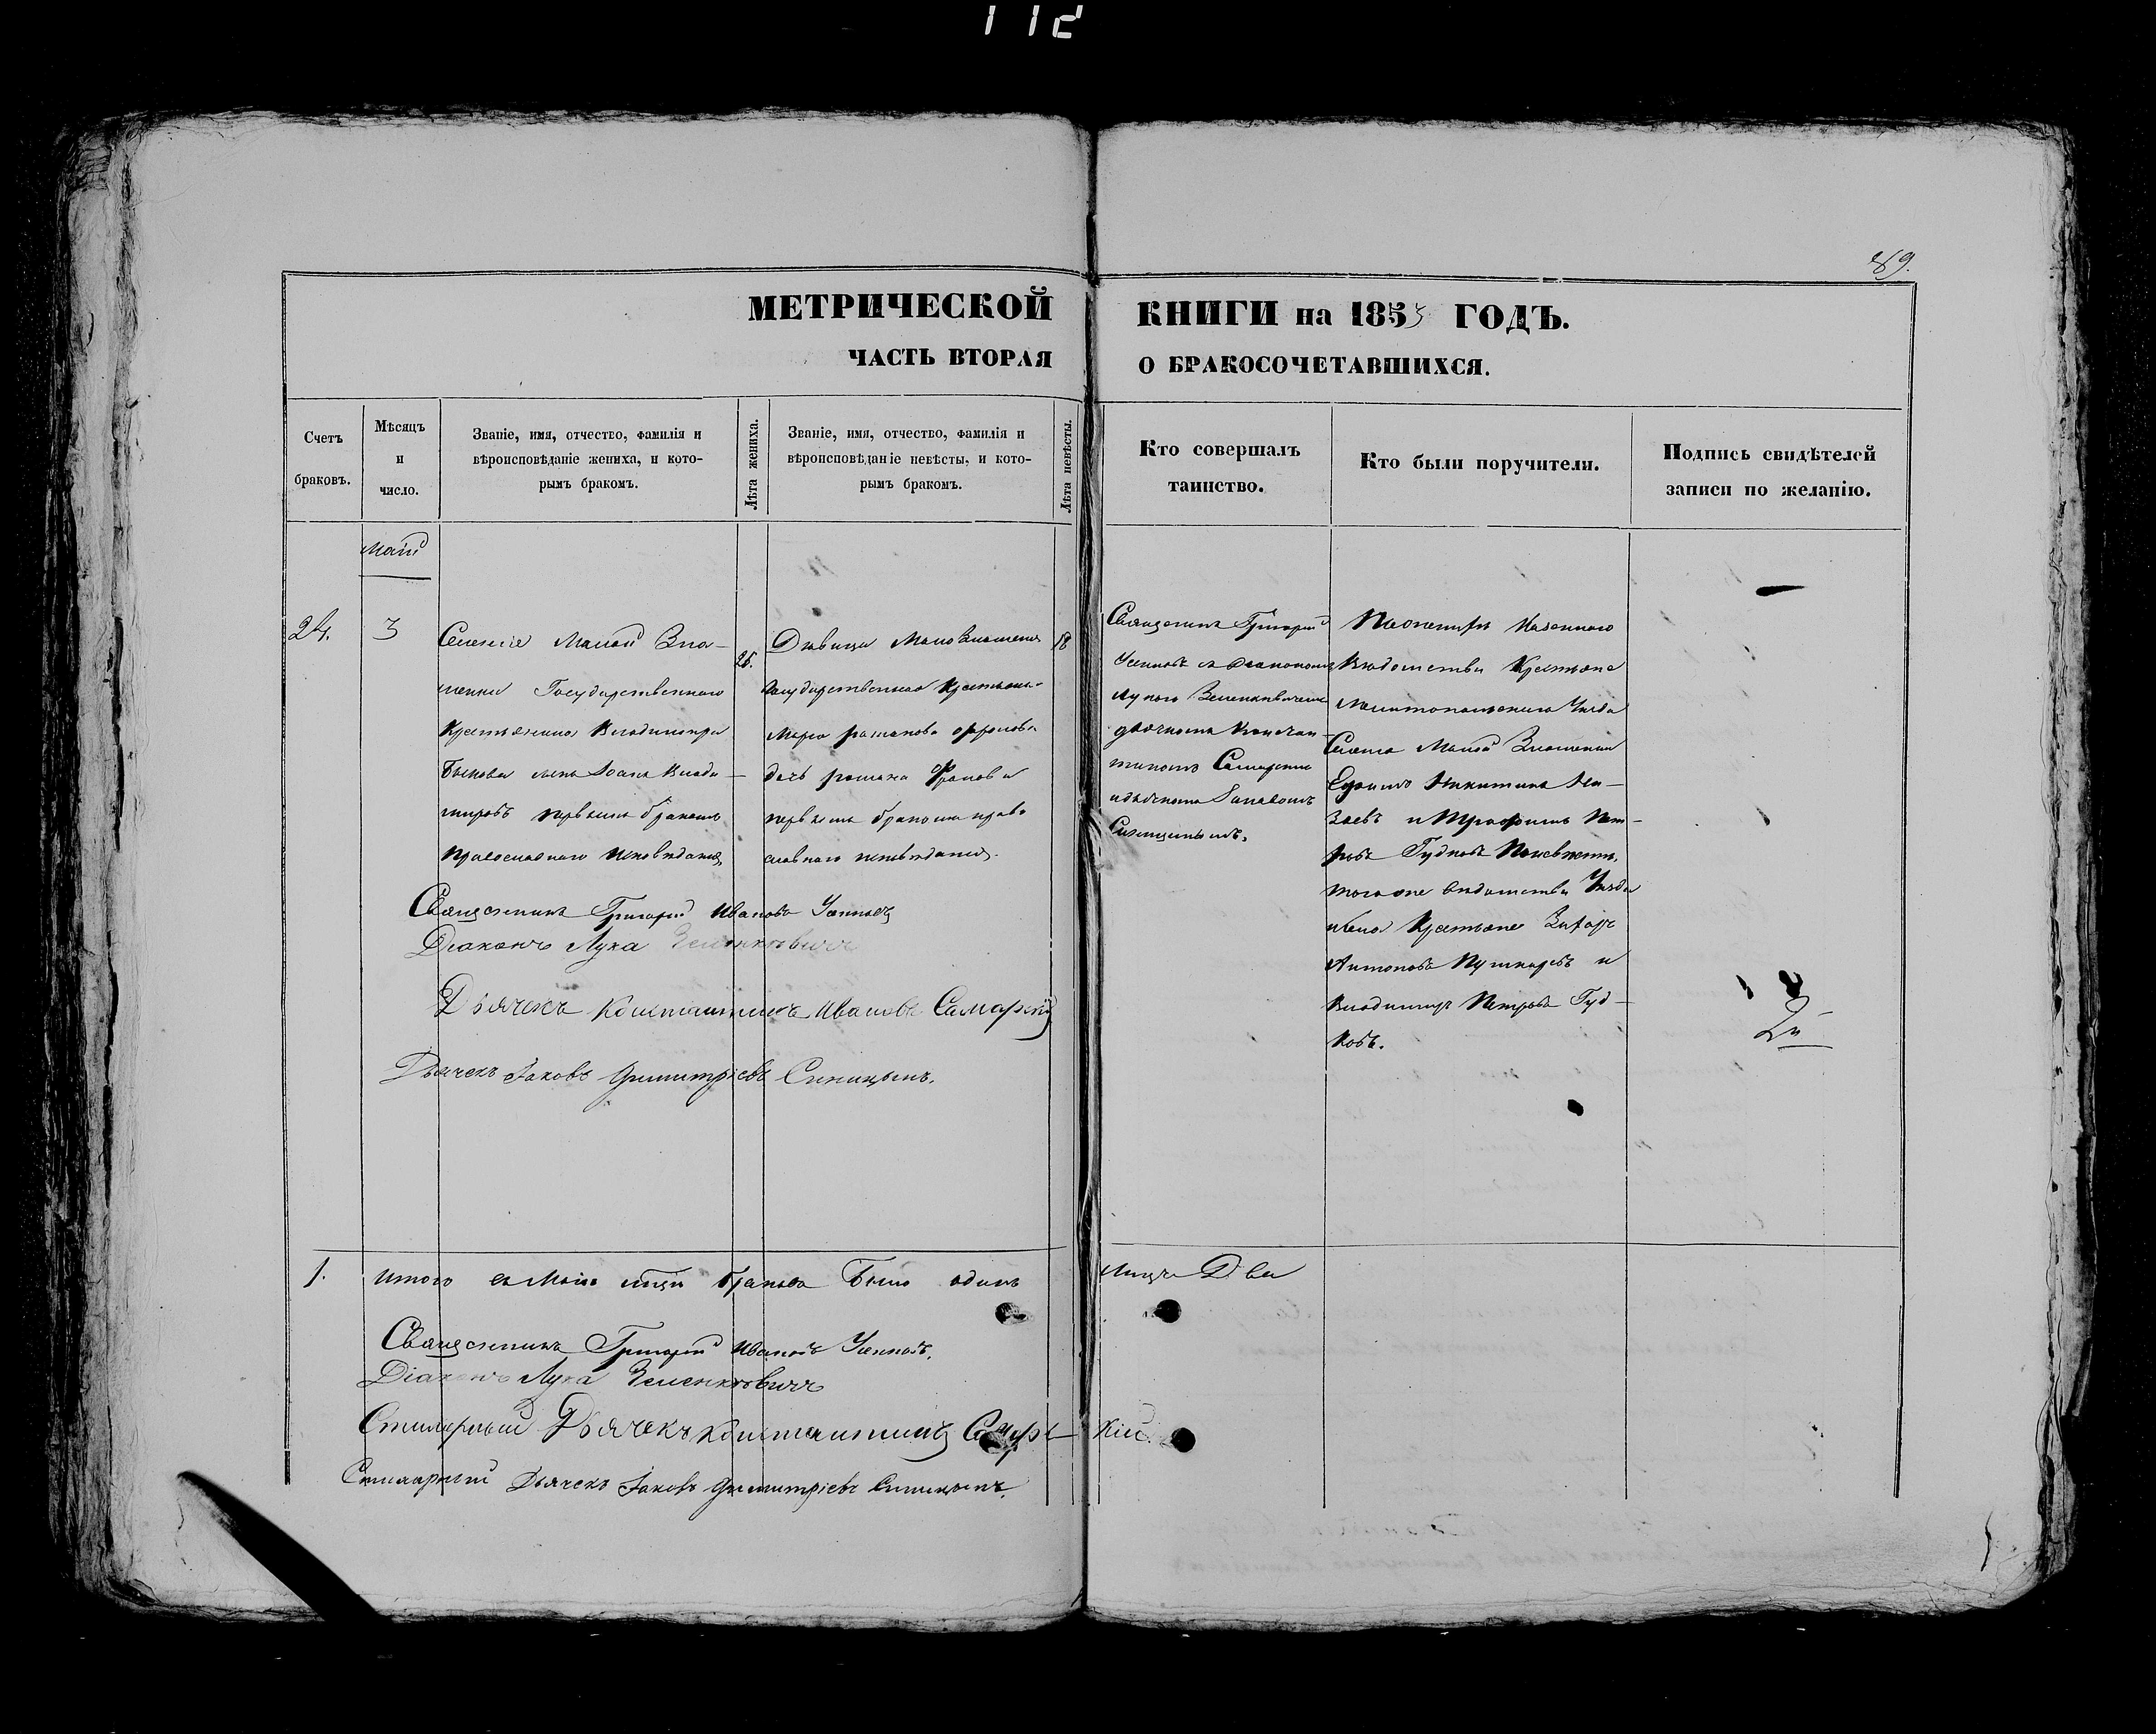 112
89.
МЕТРИЧЕСКОЙ КНИГИ на 1853 ГОДЪ.
ЧАСТЬ ВТОРАЯ О БРАКОСОЧЕТАВШИХСЯ.
Счетъ браковъ.
Мѣсяцъ и число.
Званіе, имя, отчество, фамилія и
вѣроисповѣданіе жениха, и кото-
рымъ бракомъ.
Лѣта жениха.
Званіе, имя, отчество, фамилія и
вѣроисповѣданіе невѣсты, и кото-
рымъ бракомъ.
Лѣта невѣсты.
Кто совершалъ
таинство.
Кто были поручители.
Подпись свидѣтелей
записи по желанію.
Маій
24.
3
Селенія Малой Зна-
менки Государственнаго
Крестьянина Владимира
Быкова сынъ Іоанъ Влади-
міровъ первымъ бракомъ
православнаго исповѣданія
25.
Дѣвица Мало Знаменки
Государственнаго Крестьяни-
Марія Романова
дочь Романа
первымъ бракомъ право
славнаго исповѣданія.
18
Священникъ Григорій
съ Діакономъ
Лукою Зеленкевичемъ
дьячкомъ Констан-
тиномъ Самарскимъ
и дьячкомъ Іаковомъ
Синицынымъ.
По женихѣ казеннаго
Вѣдомства Крестьяне
Мелитопольскаго Уѣзда
Селенія Малой Знаменки
Никитинъ
и Трофимъ Пет-
ровъ Гудковъ По невѣстѣ
тогоже вѣдомства Уѣзда
и села Крестьяне Захаръ
Антоновъ Пушкаревъ и
Владимиръ Петровъ Гуд-
ковъ.
Священникъ Григорій Ивановъ
Діаконъ Лука Зеленкевичъ
Дьячекъ Константинъ Ивановъ Самарскій
Дьячекъ Іаковъ Димитріевъ Синицынъ.
1. Итого въ Маіѣ мцѣ браковъ было одинъ лицъ Два
Священникъ Григорій Ивановъ
Діаконъ Лука Зеленкевичъ
Стихарный Дьячекъ Константинъ Самарскій.
Стихарный Дьячекъ Іаковъ Димитріевъ Синицынъ.